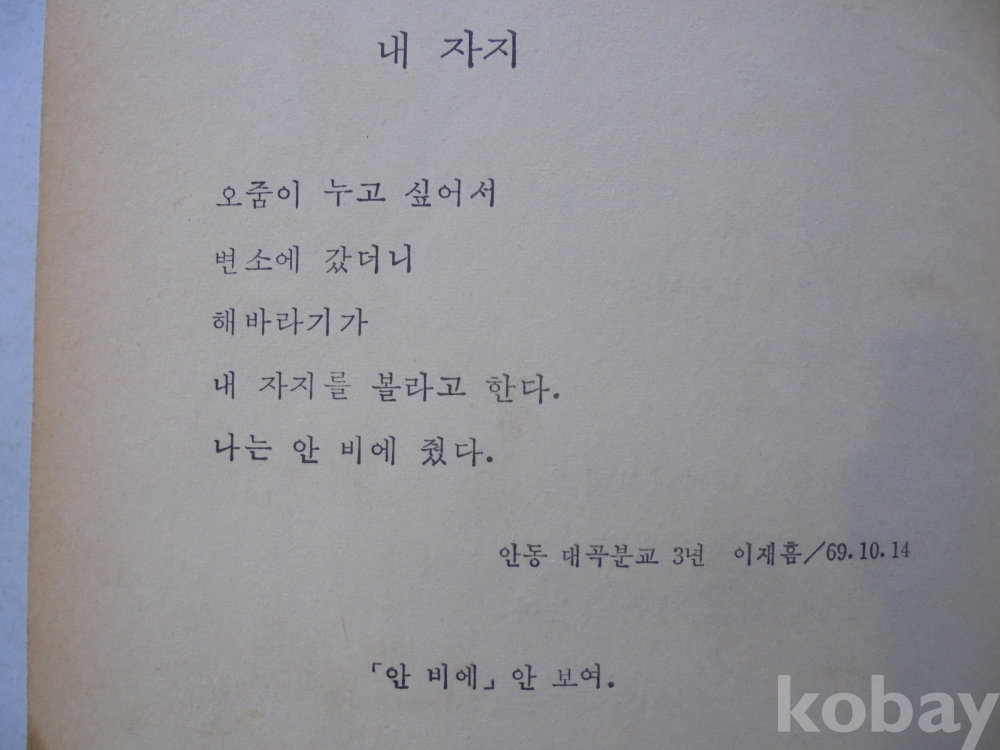 내 자지
오줌이 누고 싶어서
변소에 갔더니
해바라기가
내 자지를 볼라고 한다.
나는 안 비에 줬다.
안동 대곡분교 3년 이재흠/69.10.14
「안 비에」안 보여.
kobay